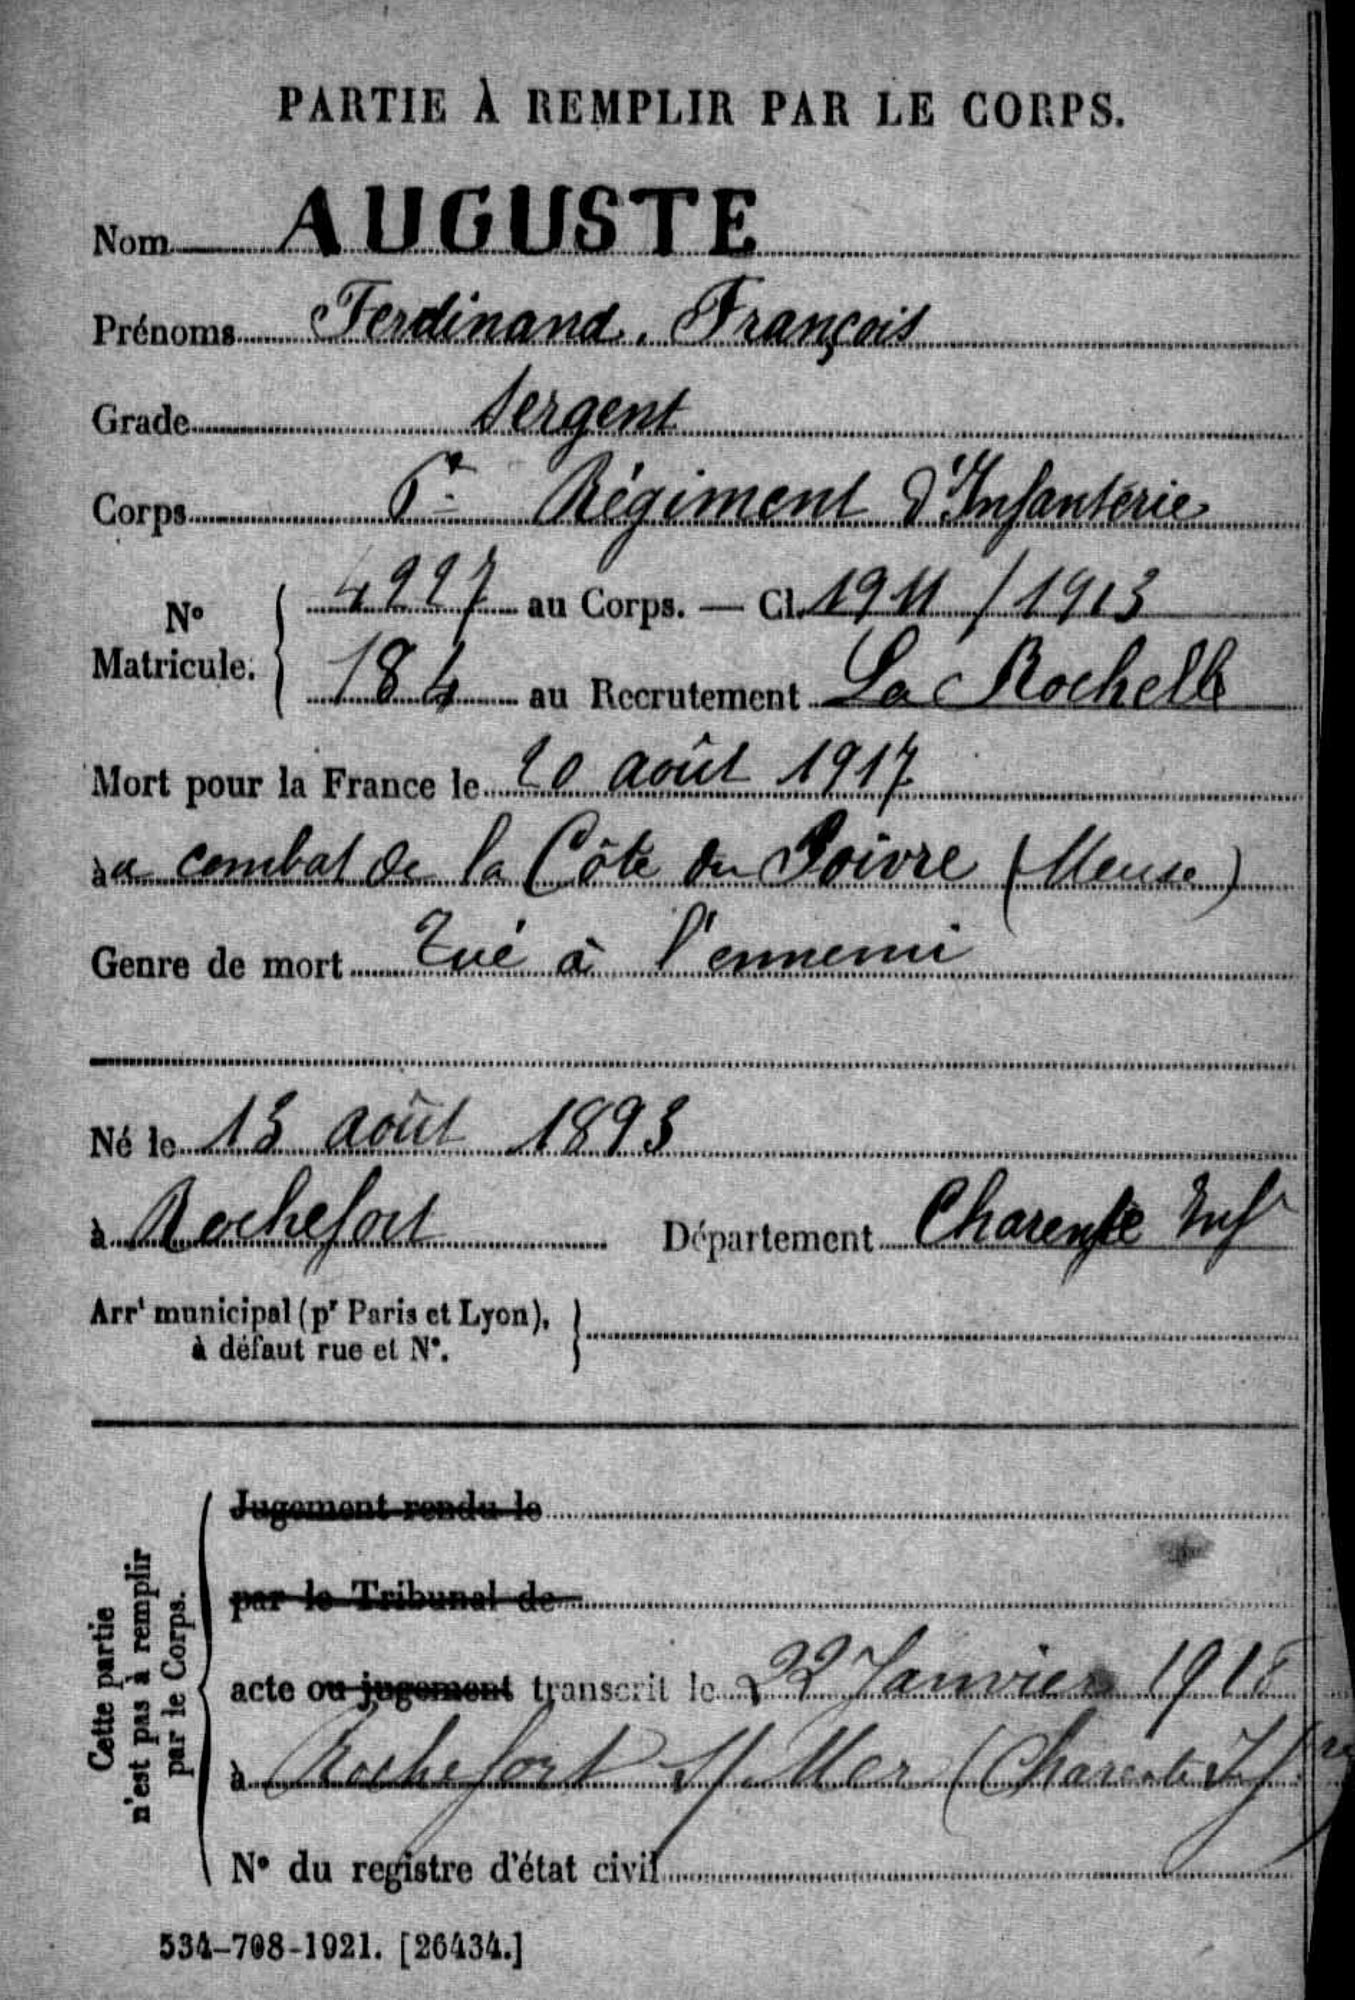 PARTIE À REMPLIR PAR LE CORPS.
Nom AUGUSTE
Prénoms Ferdinand, François
Grade Sergent
Corps 6e Régiment d'Infanterie
No Matricule. 4227 au Corps. — Cl. 1911 / 1913
184 au Recrutement La Rochelle
Mort pour la France le 20 août 1917
au combat de la Côte du Poivre (Meuse)
Genre de mort Tué à l'ennemi
Né le 13 août 1893
à Rochefort Département Charente Infr
Arrt municipal (pr Paris et Lyon),
à défaut rue et N°.
Cette partie
n'est pas à remplir
par le Corps.
Jugement rendu le
par le Tribunal de
acte ou jugement transcrit le 22 Janvier 1918
à Rochefort s/ Mer (Charente Infre
N° du registre d'état civil
534-708-1921. [26434.]